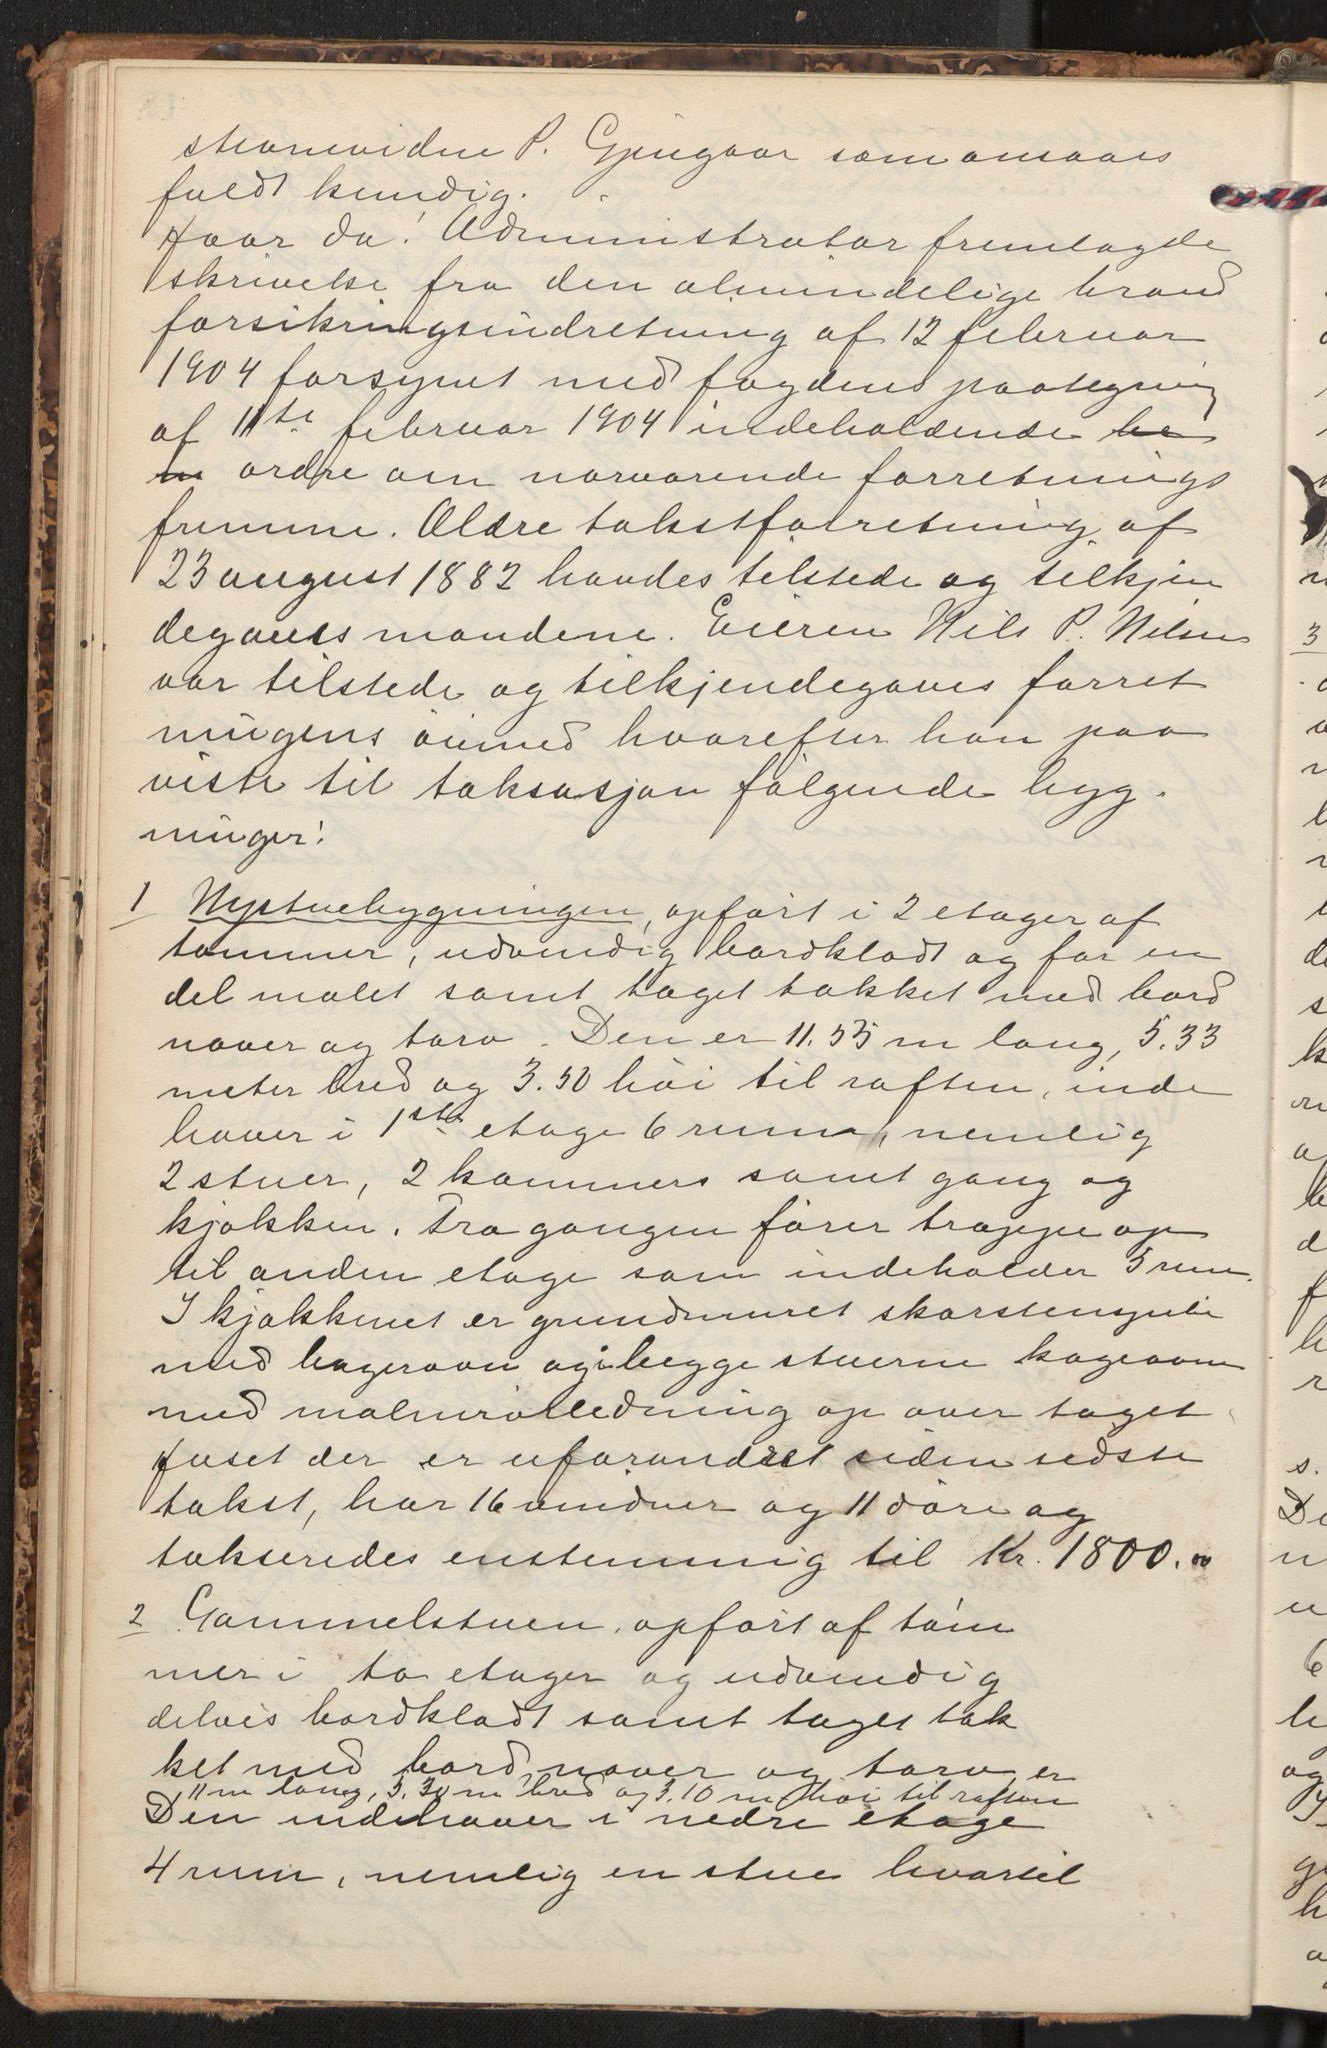 skranevidne P. Gjengaar som ansaaes
fuldt kundig.
Hvor da! Administrator fremlagde
skrivelse fra den almindelige brand
forsikringsindretning af 12 februar
1904 forsynet med fogdens paategning
af 11te februar 1904 indeholdende be
m ordre om nærværende forretnings
fremme. Ældre takstforretning af
23 august 1882 havdes tilstede og tilkjen
degaves mændene. Eieren Nils P. Nilsen
var tilstede og tilkjendegaves forret
ningens øiemed hvorefter han paa
viste til taksasjon følgende byg.
ninger!
1 Nystuebygningen, opført i 2 etager af
tømmer, udvendig bordklædt og for en
del malet samt taget tækket med bord
næver og torv. Den er 11.55 m lang, 5.33
meter bred og 3.50 høi til raften, inde
haver i 1ste etage 6 rum, nemlig
2 stuer, 2 kammers samt gang og
kjøkken. Fra gangen fører trappe op
til anden etage som indeholder 5 rum.
I kjøkkenet er grundmuret skorstenspibe
med bagerovn og i begge stuerne kageovn
med malmrørledning op over taget
Huset der er uforandret siden sidste
takst, har 16 vinduer og 11 døre og
takseredes enstemmig til Kr. 1800.00
2 Gammelstuen, opført af tøm
mer i to etager og udvendig
delvis bordklædt samt taget tæk
ket med bord, næver og torv, er
11 m lang, 5.30 m bred og 3.10 m høi til raften
Den indehaver i nedre etage
4 rum, nemlig en stue hvortil